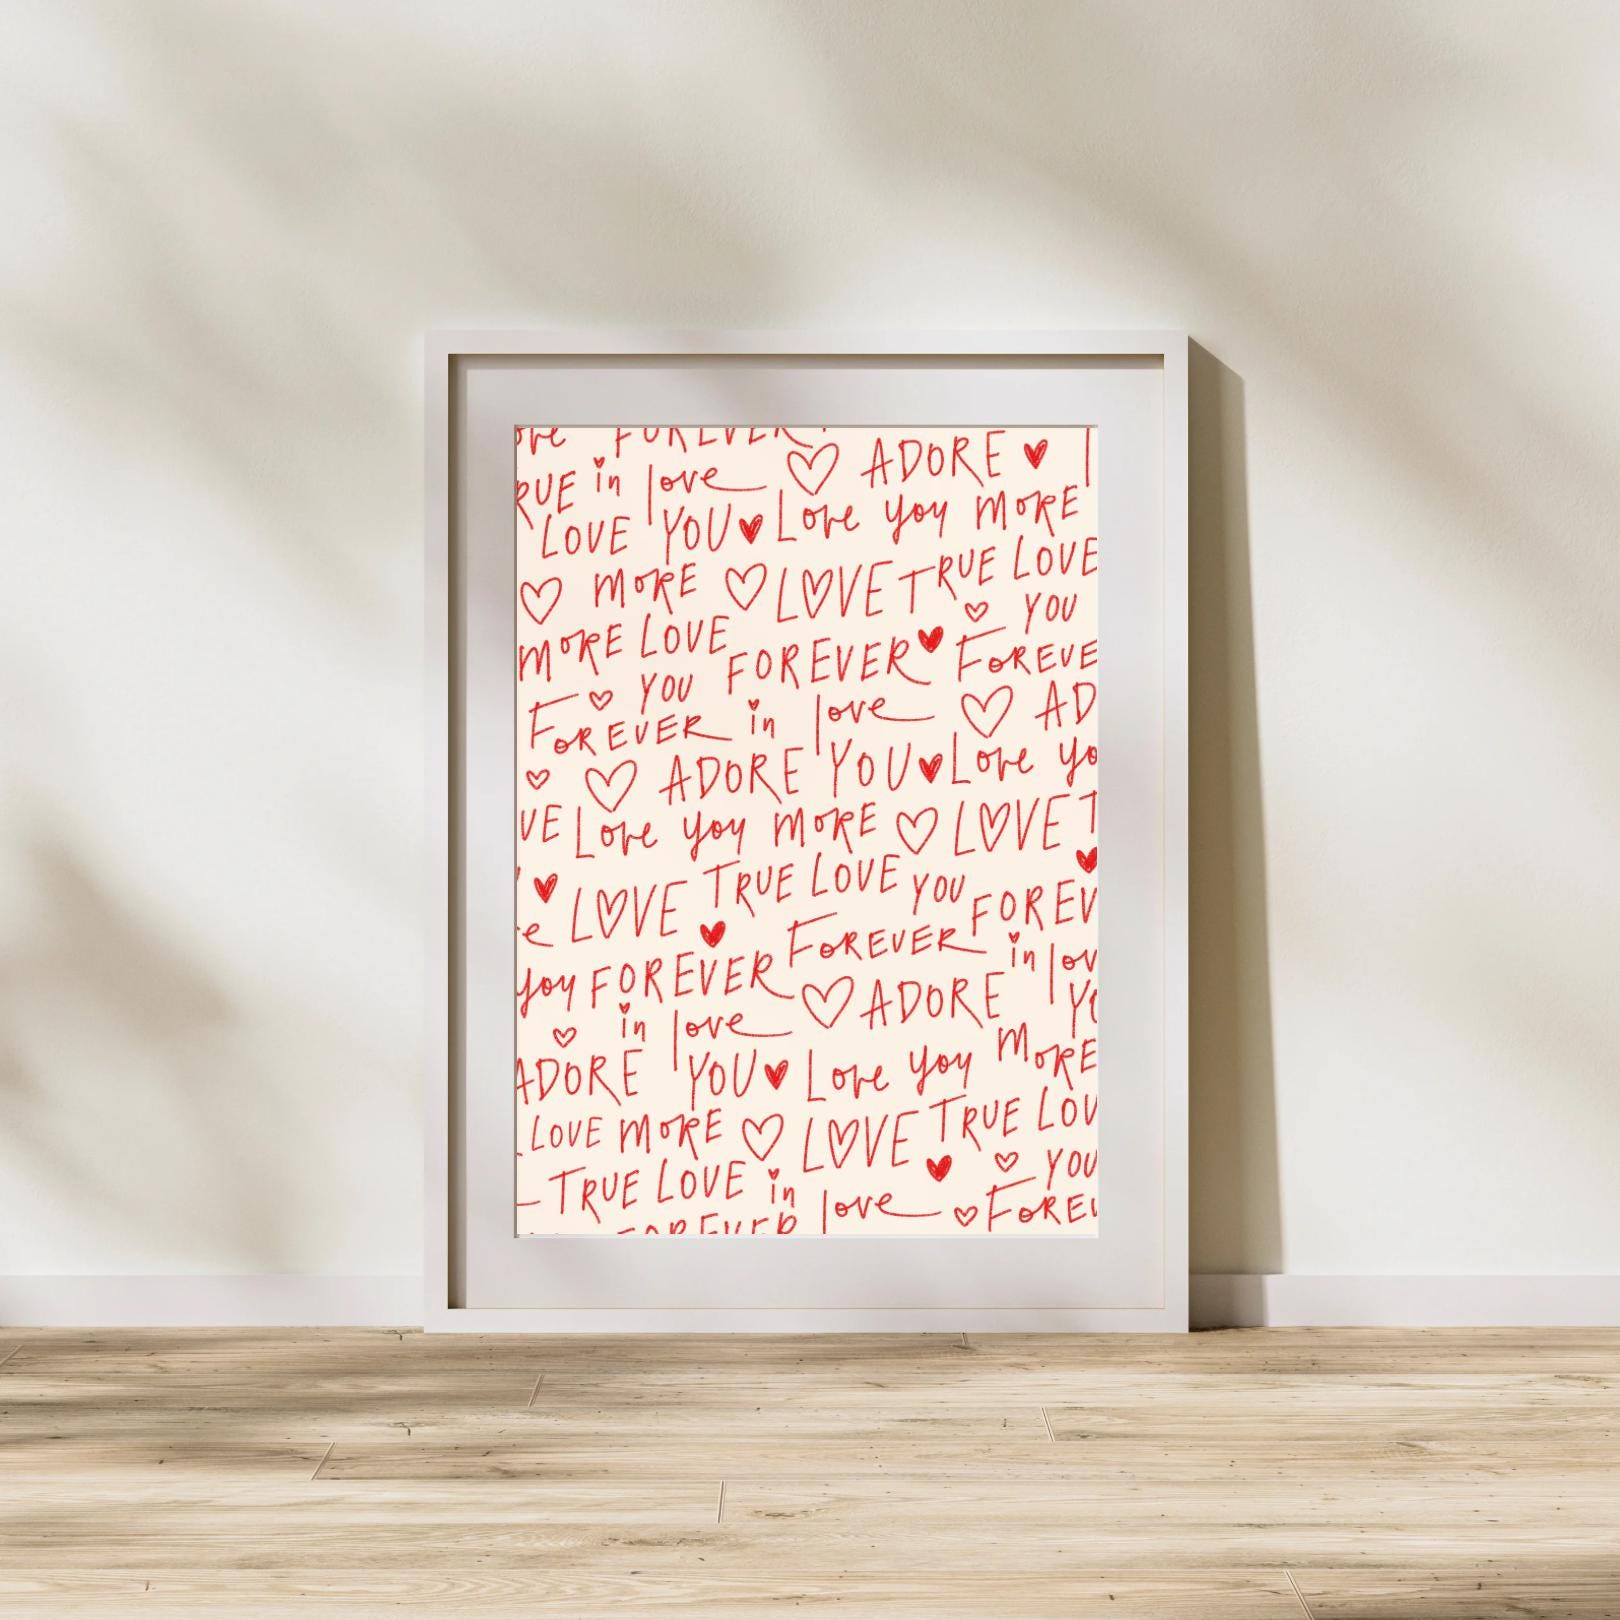 ove FOREVER
RUE in love ADORE
LOVE YOU Love you MORE
MORE LOVE TRUE LOVE
MORE LOVE YOU
YOU FOREVER FOREVE
FOREVER in love AD
ADORE YOU Love yo
VE Love you MORE LOVE T
LOVE TRUE LOVE YOU FOREV
e FOREVER in lov
you FOREVER ADORE YO
in love
ADORE YOU Love you MORE
LOVE MORE LOVE TRUE LOV
TRUE LOVE in love YOU
FOREVER FOREV